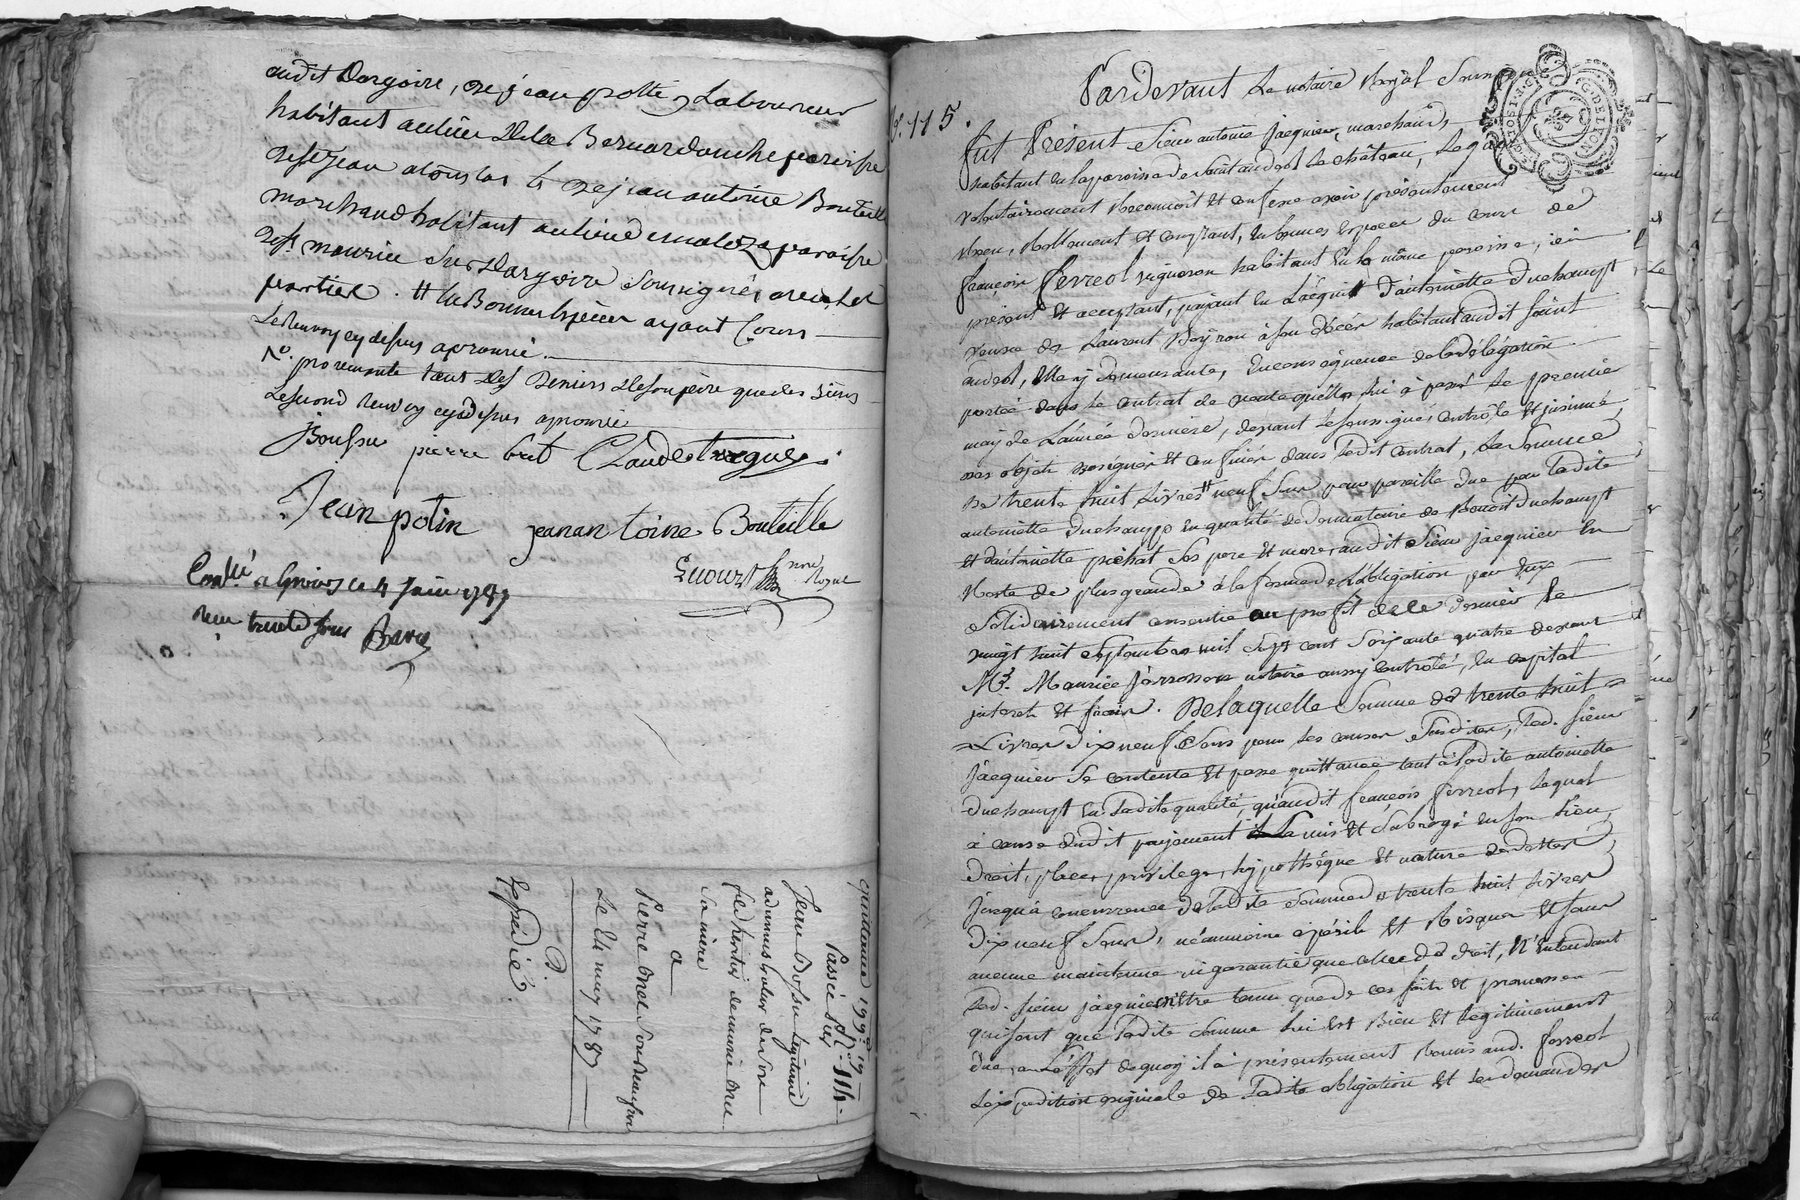 audit Dargoire, & jean pottin Laboureur
habitant au lieu de la Bernardouche paroisse
de st jean a toulas & de jean antoine Bouteille
marchand habitant au lieu de paroisse
de st maurice sur Dargoire soussignés avec les
parties. # en Bonnes Espèces ayant Cours
Le Renvoy cy dessus aprouvé
provenante tant des Deniers de son père que des siens
Le second Renvoy cy dessus aprouvé
Bonssu pierre bret Claude
Jean potin jean antoine Bouteille
nore Royal
Conllé a Givors le 4 Juin 1787
Reçu trente sous
quittance 199# 19s
Passée par
Jean légitime
administrateur de ses
la mère
a
Pierre
Le 21 may 1787
D.
Expédié.
No. 115.
Pardevant Le notaire Royal Soussigné
fut Présent Sieur antoine jacquier, marchand,
habitant en la paroisse de Saint andeol le château, Lequel
volontairement Reconnoit et confesse avoir présentement
Reçu, Réellement et comptant, en bonnes espèces du cours de
françois ferreol vigneron habitant en la même paroisse, ici
présent et acceptant, payant en l'acquit d'antoinette Duchampt
veuve de Laurent Poyron à son décès habitant audit Saint
andeol, elle y demeurante, en conséquence de la délégation
portée dans le contrat de vente qu'elle lui à passé le premier
may de L'année dernière, devant le soussigné, contrôlé et insinué
aux objets désignés et confinés dans ledit contrat, La Somme
De trente huit Livres # neuf Sous pour pareille due par ladite
antoinette duchampt en qualité de donnatoire de Benoit Duchampt
et d'antoinette pichat ses pere et mere, audit Sieur jacquier en
Reste de plus grande à la forme de l'obligation par eux
Solidairement consentie au profit de ce dernier le
vingt huit septembre mil sept cent soixante quatre devant
Me. Maurice Jarrosson notaire aussy contrôlé, en capital
interets et frais. De laquelle Somme de trente huit
Livres dix neuf Sous pour les causes Susdites, led. Sieur
jacquier Se contente et passe quittance tant à ladite antoinette
duchampt en ladite qualité, qu'audit françois ferreol, lequel
à cause dudit payement il a mis et Subrogé en son lieu,
Droit, place, privilege, hypothéque et nature de dettes,
jusqu'à concurrence de ladite Somme de trente huit Livres
Dix neuf Sous, néanmoins à périls et Risques et sans
aucune maintenue ni garantie que celle de droit, N'Entendant
led. Sieur jacquier être tenu que de ces faits et promesses
qui sont que ladite Somme lui est Bien et légitimement
düe, a L'effet de quoy il à présentement Remis aud. ferreol
L'expédition originale de Ladite obligation et les demandes
G. DE LYON